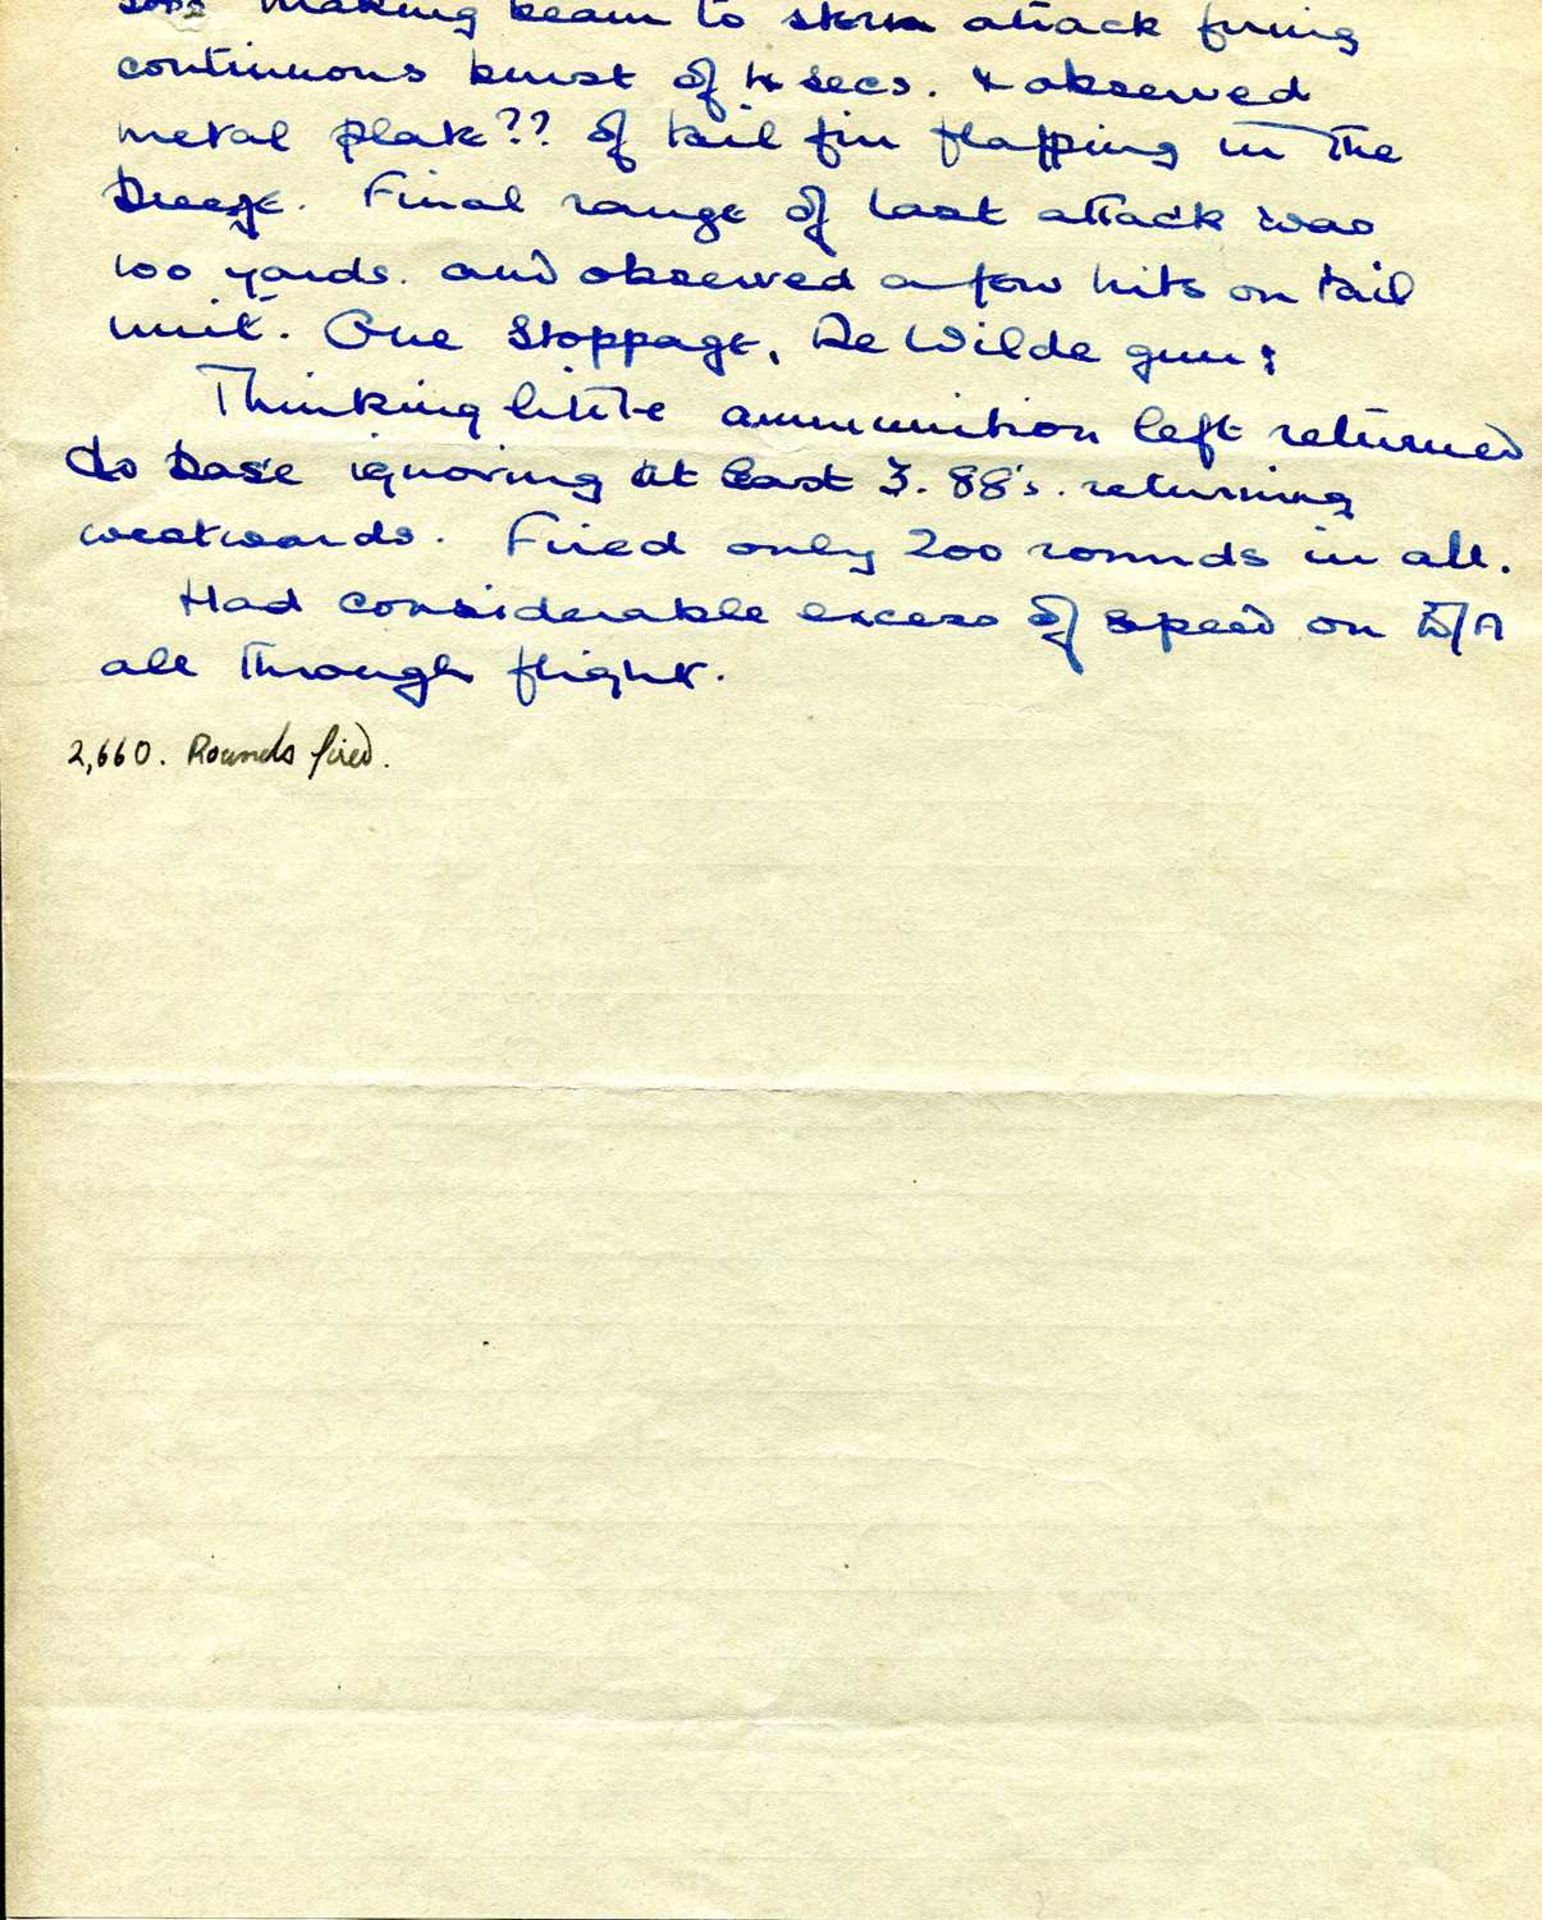 making beam to stern attack firing
continuous burst of 4 secs. & observed
metal plate?? of tail fin flapping in the
breeze. Final range of last attack was
100 yards. and observed a few hits on tail
unit. One Stoppage, De Wilde gun:
Thinking little ammunition left returned
to base ignoring at least 3. 88's. returning
westwards. Fired only 200 rounds in all.
Had considerable excess of speed on E/A
all through flight.
2,660. Rounds fired.